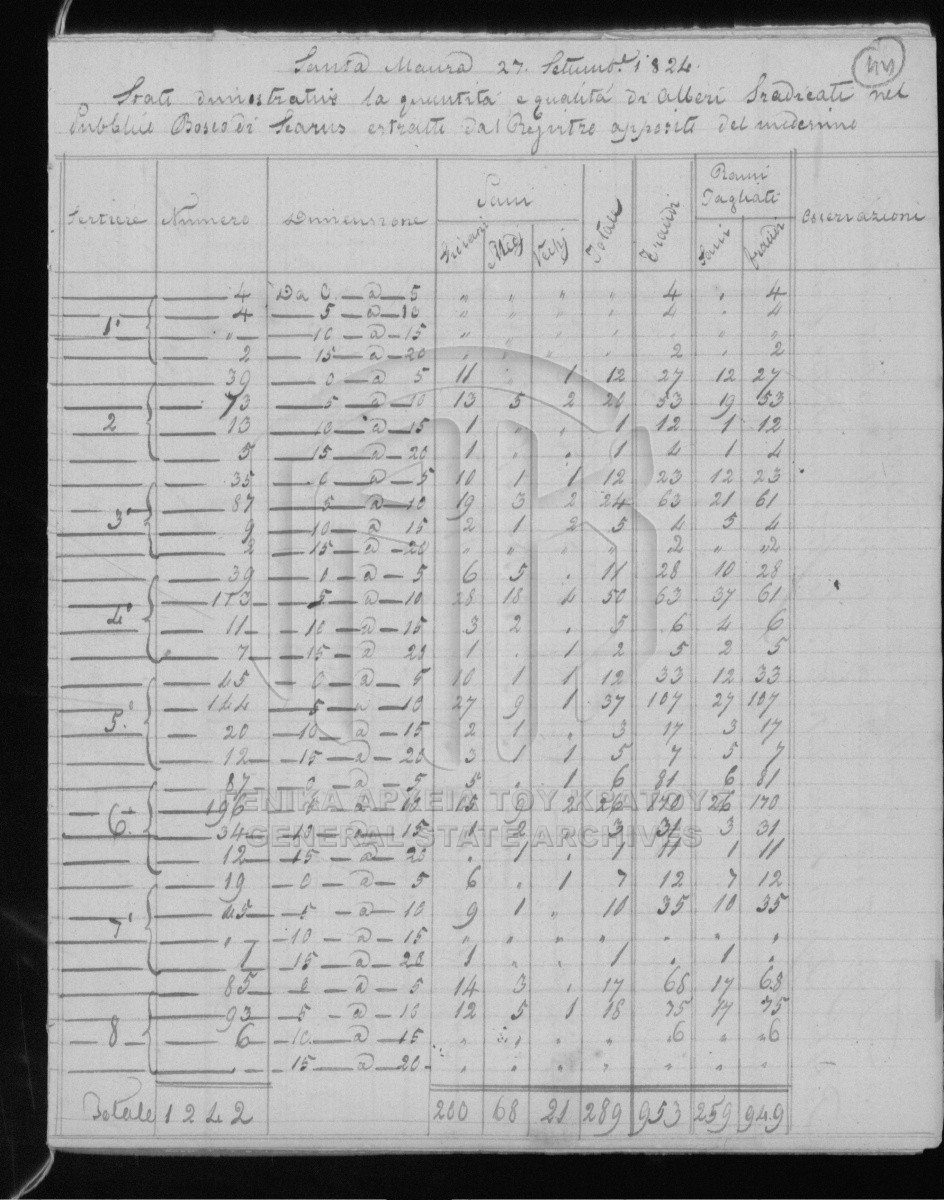 44
Santa Maura 27. Settemb.e 1824.
Stato dimostrativo la quantità e qualità di Alberi Sradicati nel
Pubblico Bosco di Scarus estratto dal Registro apposito del medesimo
Sertiere Numero Dimensione Sani Totale Fradi Rami Tagliati Osservazioni
Giovani Mezj Vechj Sani fradi
1° 4 Da 0 a 5 " " " " 4 " 4
4 5 a 10 " " " " 4 " 4
" 10 a 15 " " " " " " "
2 15 a 20 " " " " 2 " 2
2 39 0 a 5 11 " 1 12 27 12 27
73 5 a 10 13 5 2 20 53 19 53
13 10 a 15 1 " " 1 12 1 12
5 15 a 20 1 " " 1 4 1 4
3° 35 0 a 5 10 1 1 12 23 12 23
87 5 a 10 19 3 2 24 63 21 61
9 10 a 15 2 1 2 5 4 5 4
2 15 a 20 " " " " 2 " "2
4° 39 0 a 5 6 5 " 11 28 10 28
113 5 a 10 28 18 4 50 63 37 61
11 10 a 15 3 2 " 5 6 4 6
7 15 a 20 1 " 1 2 5 2 5
5° 45 0 a 5 10 1 1 12 33 12 33
144 5 a 10 27 9 1 37 107 27 107
20 10 a 15 2 1 " 3 17 3 17
12 15 a 20 3 1 1 5 7 5 7
6° 87 0 a 5 5 " 1 6 81 6 81
196 5 a 10 15 9 2 26 170 26 170
34 10 a 15 1 2 " 3 31 3 31
12 15 a 20 " 1 " 1 11 1 11
7° 19 0 a 5 6 " 1 7 12 7 12
45 5 a 10 9 1 " 10 35 10 35
" 10 a 15 " " " " " " "
1 15 a 20 1 " " 1 " 1 "
8 85 0 a 5 14 3 " 17 68 17 68
93 5 a 10 12 5 1 18 75 17 75
6 10 a 15 " " " " 6 " "6
" 15 a 20 " " " " " " "
Totale 1242 200 68 21 289 953 259 949
ΓΕΝΙΚΑ ΑΡΧΕΙΑ ΤΟΥ ΚΡΑΤΟΥΣ
GENERAL STATE ARCHIVES